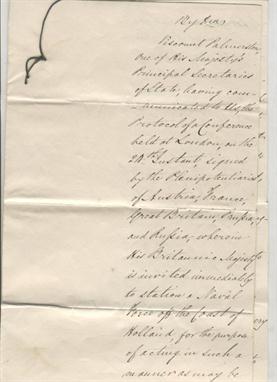 By &c
Viscount Palmerston,
One of His Majesty's
Principal Secretaries
of State, having com-
municated to Us, the
Protocol of a Conference
held at London, on the
20th Instant, signed
by the Plenipotentiaries
of Austria, France,
Great Britain, Prussia,
and Russia; wherein
His Britannic Majesty
is invited immediately
to station a Naval
Force off the Coast of
Holland for the purpose
of acting in such a
manner as may be